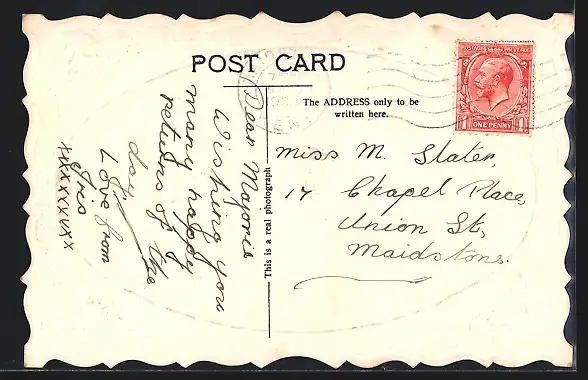 POST CARD
The ADDRESS only to be
written here.
POSTAGE REVENUE
ONE PENNY
This is a real photograph
Dear Marjorie
Wishing you
many happy
returns of the
day,
Love from
Iris
Miss M. Slater,
17 Chapel Place,
Union St,
Maidstone.